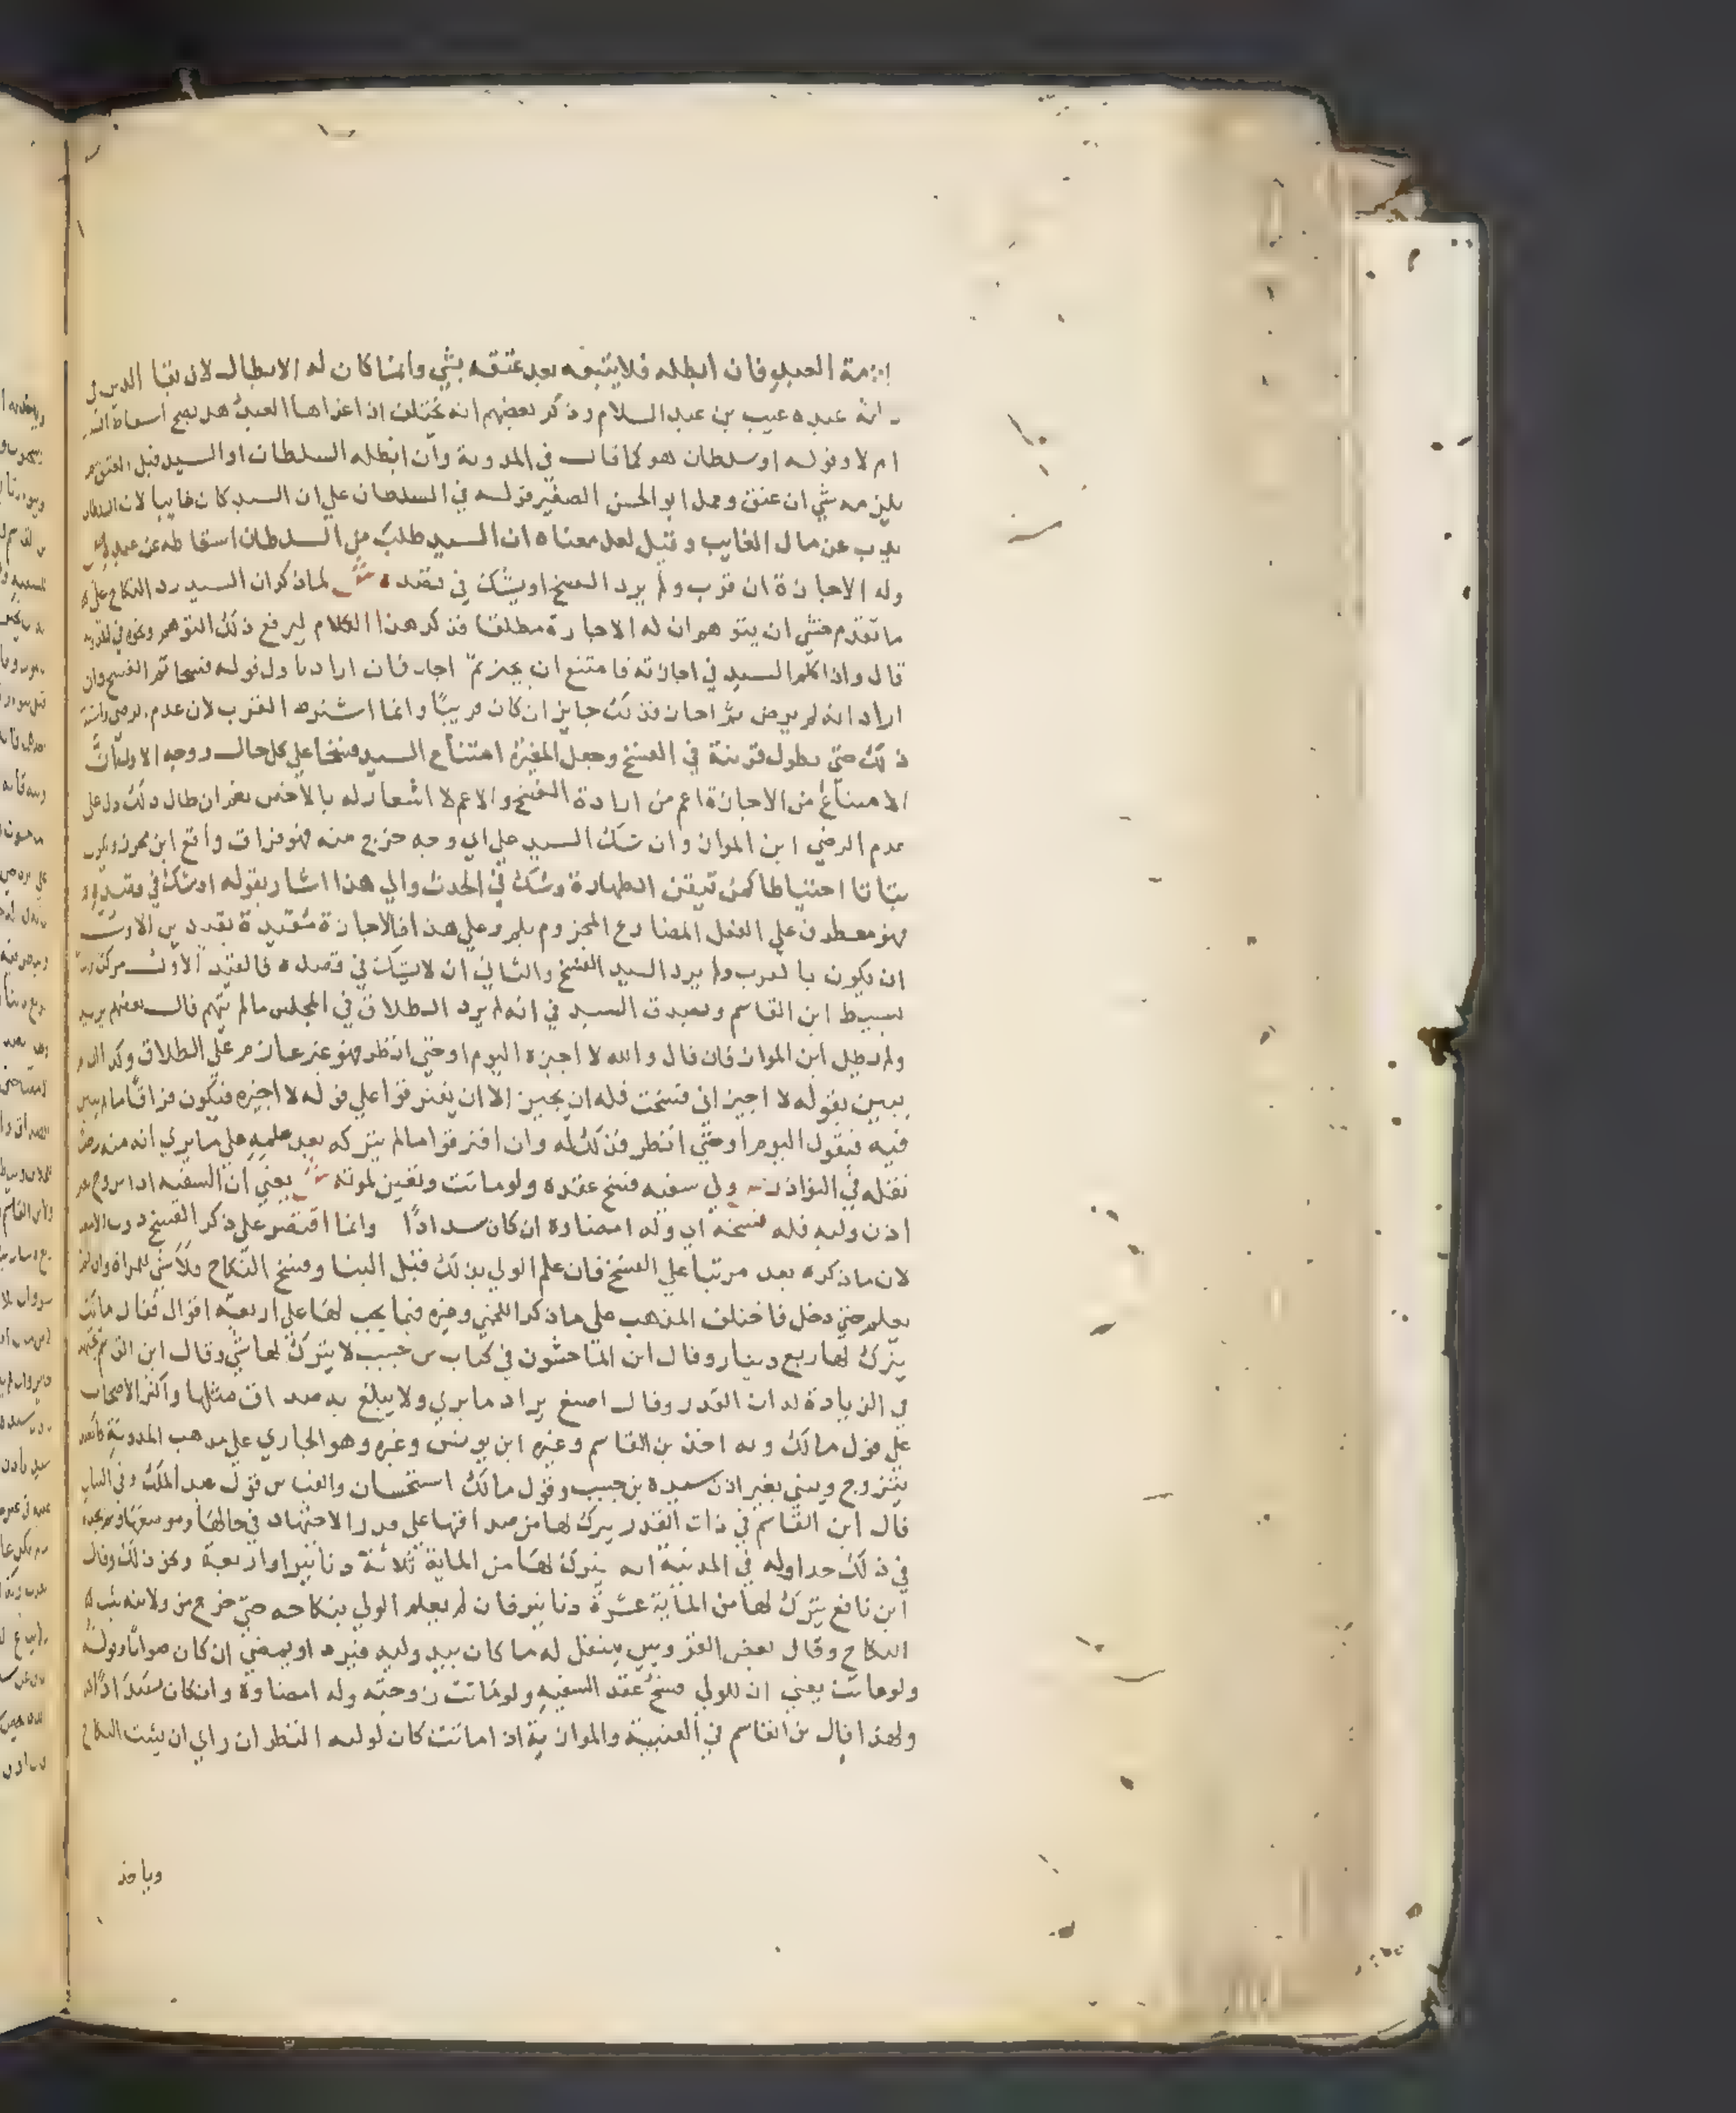 ذمة العبد فان ابطله فلا يتبعه بعد عتقه بشي وانما كان له الابطال لان بقا الدين في
ذمة عبده عيب بن عبد السلام وذكر بعضهم انه يختلف اذا غرها العبد هل يصح اسقاط
ام لا وقوله او سلطان هو كما قال في المدونة وان ابطله السلطان او السيد قبل العتق لم
يلزمه شي ان عتق وحمل ابو الحسن الصغير قوله في السلطان علي ان السيد كان غايبا لان السلطان
يذب عن مال الغايب وقيل لعل معناه ان السيد طلب من السلطان اسقاطه عن عبده
وله الاجازة ان قرب ولم يرد الفسخ او يشك في قصده ش لما ذكر ان السيد رد النكاح علي
ما تقدم خشي ان يتوهم ان له الاجازة مطلقا فذكر هذا الكلام ليرفع ذلك التوهم ونحوه في المدونة
قال واذا كلم السيد في اجازته فامتنع ان يجيز ثم اجاز فان اراد باول قوله فسخا تم الفسخ وان
اراد انه لم يرض ثم اجاز فذلك جايز ان كان قريبا وانما اشترط القرب لان عدم
ذلك حتي يطول قرينة في الفسخ وجعل المغيرة امتناع السيد فسخا علي كل حال ووجه الاول ان
الامتناع من الاجازة اعم من ارادة الفسخ والاعم لا اشعار له بالاخص نعم ان طال ذلك دل علي
عدم الرضي ابن المواز وان شك السيد علي اي وجه خرج منه فهو فراق واقع ابن محرز ويكون
بتاتا احتياطا كمن تيقن الطهارة وشك في الحدث والي هذا اشار بقوله او يشك في قصده
فهو معطوف علي الفعل المضارع المجزوم بلم وعلي هذا فالاجازة مقيدة بقيدين الاول
ان يكون بالقرب ولم يرد السيد الفسخ والثاني ان لا يشك في قصده فالقيد الاول مركب
بسيط ابن القاسم ويصدق السيد في انه لم يرد الطلاق في المجلس ما لم يتهم قال بعضهم يريد
ولم يطل ابن المواز فان قال والله لا اجيزه اليوم او حتي انظر فهو غير عازم علي الطلاق وكذا ان لم
يبين بقوله لا اجيز اني فسخت فله ان يجيز الا ان يفترقوا علي قوله لا اجيزه فيكون فراقا ما لم يبين
فيه فيقول اليوم او حتي انظر فذلك له وان افترقوا ما لم يتركه بعد علمه علي ما يري انه منه رضي
نقله في النوادر ص ولولي سفيه فسخ عقده ولو ماتت وتعين لموته ش يعني ان السفيه اذا تزوج بغير
اذن وليه فله فسخه اي وله امضاوه ان كان سدادا وانما اقتصر علي ذكر الفسخ دون الامضا
لان ما ذكره بعد مرتبا علي الفسخ فان علم الولي بذلك قبل البنا وفسخ النكاح فلا شي للمراة وان لم
يعلم حتي دخل فاختلف المذهب علي ما ذكر اللخمي وغيره فيما يجب لها علي اربعة اقوال فقال مالك
يترك لها ربع دينار وقال ابن الماجشون في كتاب بن حبيب لا يترك لها شي وقال ابن القاسم يجتهد
في الزيادة لذات القدر وقال اصبغ يزاد ما يري ولا يبلغ به صداق مثلها واكثر الاصحاب
علي قول مالك وبه اخذ بن القاسم وغيره ابن يونس وغيره وهو الجاري علي مذهب المدونة كالعبد
يتزوج ويبني بغير اذن سيده بن حبيب وقول مالك استحسان والقياس قول عبد الملك وفي البيان
قال ابن القاسم في ذات القدر يترك لها من صداقها علي قدر الاجتهاد في حالها وموضعها ولم يحد
في ذلك حدا وله في المدنية انه يترك لها من الماية ثلاثة دنانير او اربعة ونحو ذلك وقال
ابن نافع يترك لها من الماية عشرة دنانير فان لم يعلم الولي بنكاحه حتي خرج من ولايته ثبت
النكاح وقال بعض القرويين ينتقل له ما كان بيد وليه فيرد او يمضي ان كان صوابا وقوله
ولو ماتت يعني ان للولي فسخ عقد السفيه ولو ماتت زوجته وله امضاوه وان كان سدادا
ولهذا قال بن القاسم في العتبية والموازية اذا ماتت كان لوليه النظر ان راي ان يثبت النكاح
وياخذ